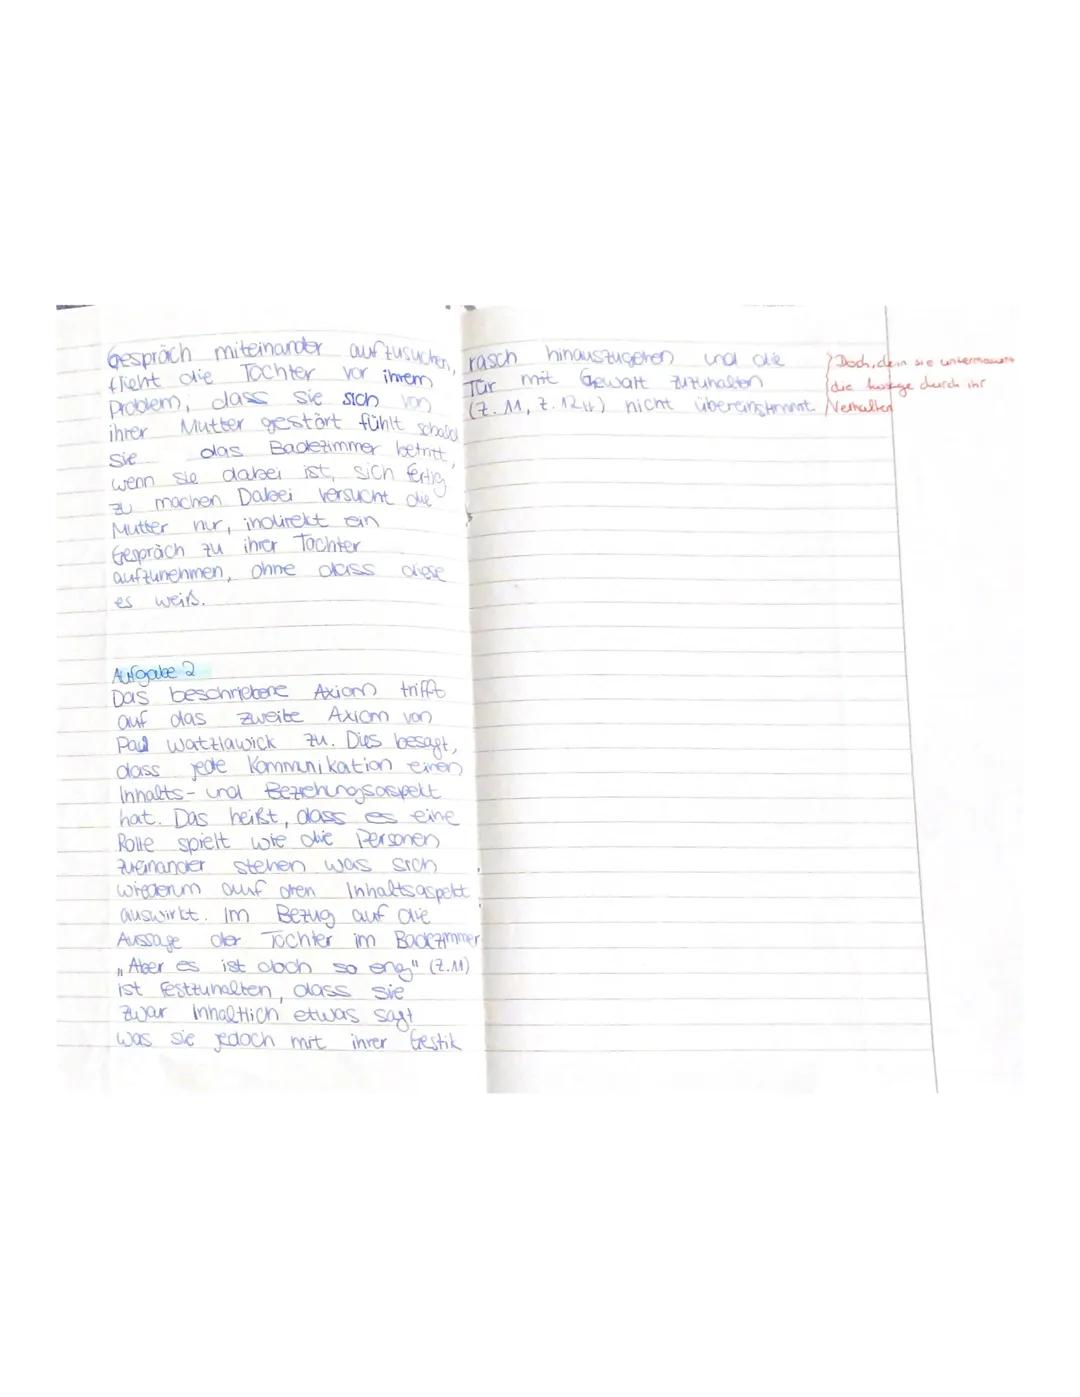 Gespräch miteinander aufzusuchen,
flieht die Tochter vor ihrem
Problem, dass sie sich von
ihrer Mutter gestört fühlt sobald
sie das Badezimmer betritt,
wenn sie dabei ist, sich fertig
zu machen. Dabei versucht die
Mutter nur, indirekt ein
Gespräch zu ihrer Tochter
aufzunehmen, ohne dass diese
es weiß.
Aufgabe 2
Das beschriebene Axiom trifft
auf das zweite Axiom von
Paul Watzlawick zu. Dies besagt,
dass jede Kommunikation einen
Inhalts- und Beziehungsaspekt
hat. Das heißt, dass es eine
Rolle spielt wie die Personen
zueinander stehen was sich
wiederum auf den Inhaltsaspekt
auswirkt. Im Bezug auf die
Aussage der Tochter im Badezimmer
„Aber es ist doch so eng" (Z.11)
ist festzuhalten, dass sie
zwar inhaltlich etwas sagt
was sie jedoch mit ihrer Gestik
rasch hinauszugehen und die
Tür mit Gewalt zuzuhalten
(Z. 11, Z. 12) nicht übereinstimmt.
Doch, denn sie untermauert
die durch ihr
Verhalten